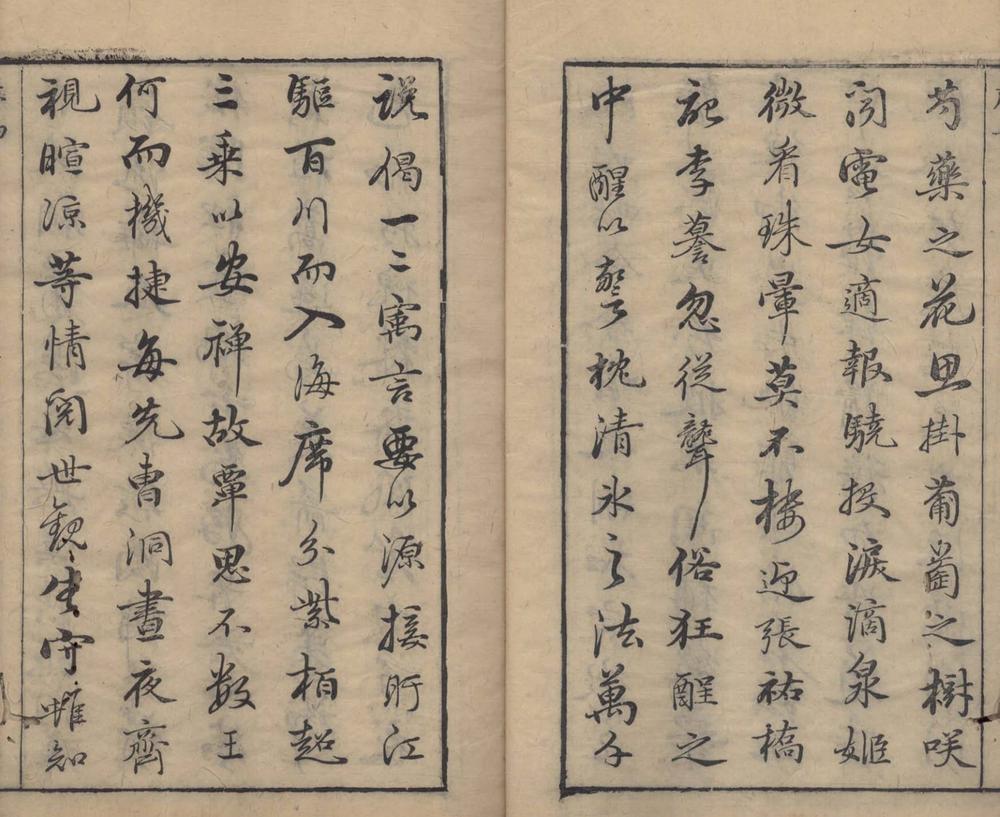 芍藥之花思掛葡萄之樹咲
閃電女適報驍投淚滴泉姬
微看珠暈莫不樓迎張祐橋
記李謩忽從聾俗狂醒之
中醒以警枕清氷之法萬千
說偈一二寓言要以源接盱江
驅百川而入海席分紫栢超
三乘以安禪故覃思不數王
何而機捷每先曹洞晝夜齊
視暄涼等情閱世觀生守雌知